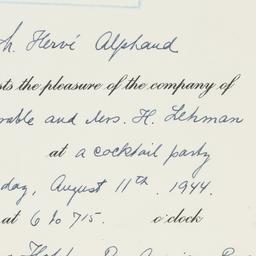 h. Hervé Alphand
sts the pleasure of the company of
rable and Mrs. H. Lehman
at a cocktail party
day, August 11th, 1944.
at 6 to 7.15. o'clock